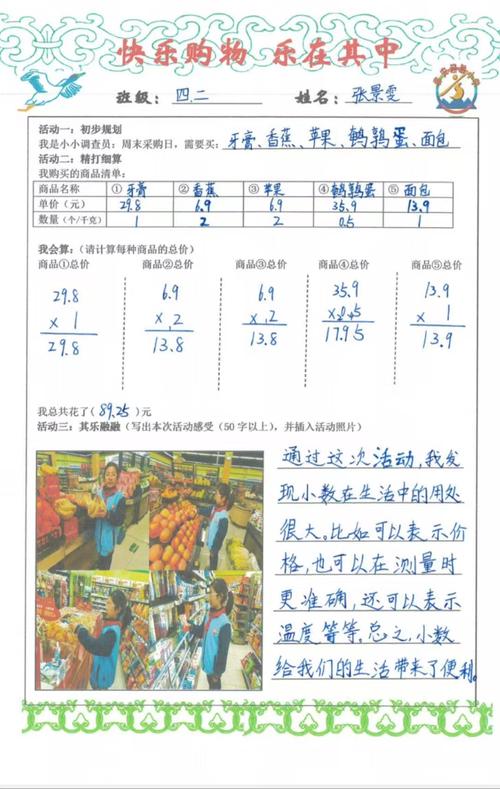 快乐购物 乐在其中
班级：四.二 姓名：张景雯
活动一：初步规划
我是小小调查员：周末采购日，需要买：牙膏、香蕉、苹果、鹌鹑蛋、面包
活动二：精打细算
我购买的商品清单：
商品名称 ①牙膏 ②香蕉 ③苹果 ④鹌鹑蛋 ⑤面包
单价（元） 29.8 6.9 6.9 35.9 13.9
数量（个/千克） 1 2 2 0.5 1
我会算：（请计算每种商品的总价）
商品①总价 商品②总价 商品③总价 商品④总价 商品⑤总价
29.8 6.9 6.9 35.9 13.9
x 1 x 2 x 2 x 0.5 x 1
29.8 13.8 13.8 17.95 13.9
我总共花了（89.25）元
活动三：其乐融融（写出本次活动感受（50字以上），并插入活动照片）
通过这次活动,我发
现小数在生活中的用处
很大。比如可以表示价
格,也可以在测量时
更准确,还可以表示
温度等等,总之,小数
给我们的生活带来了便利。